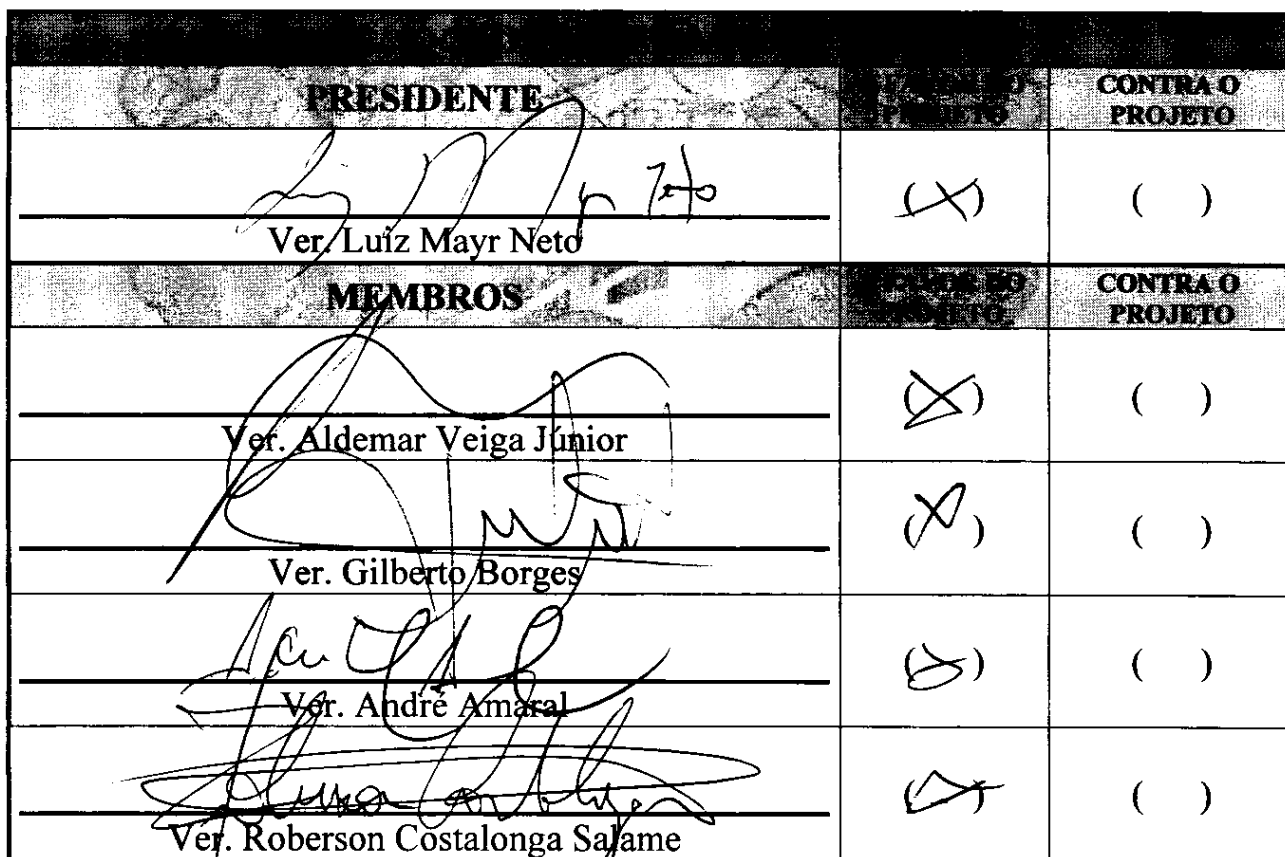 PRESIDENTE PROJETO CONTRA O PROJETO
Ver. Luiz Mayr Neto (X) ( )
MEMBROS FAVOR DO PROJETO CONTRA O PROJETO
Ver. Aldemar Veiga Júnior (X) ( )
Ver. Gilberto Borges (X) ( )
Ver. André Amaral (X) ( )
Ver. Roberson Costalonga Salame (X) ( )